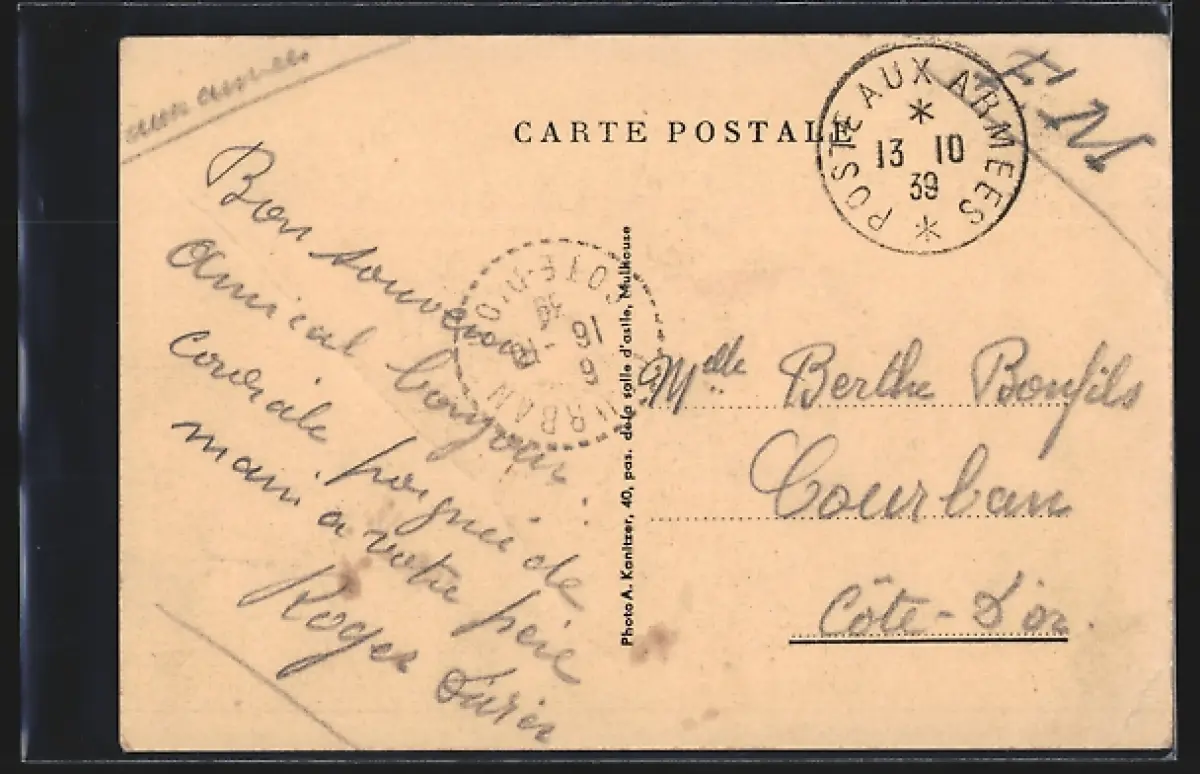 aux armées
CARTE POSTALE
F.M
POSTE AUX ARMEES
13 10
39
Bon souvenir
amical bonjour
cordiale poignée de
main a votre père
Roger
COURBAN
COTE-D'OR
16
Photo A. Kanitzer, 40, pas. de la salle d'asile, Mulhouse
Melle Berthe Bonfils
Courban
Côte-D'or